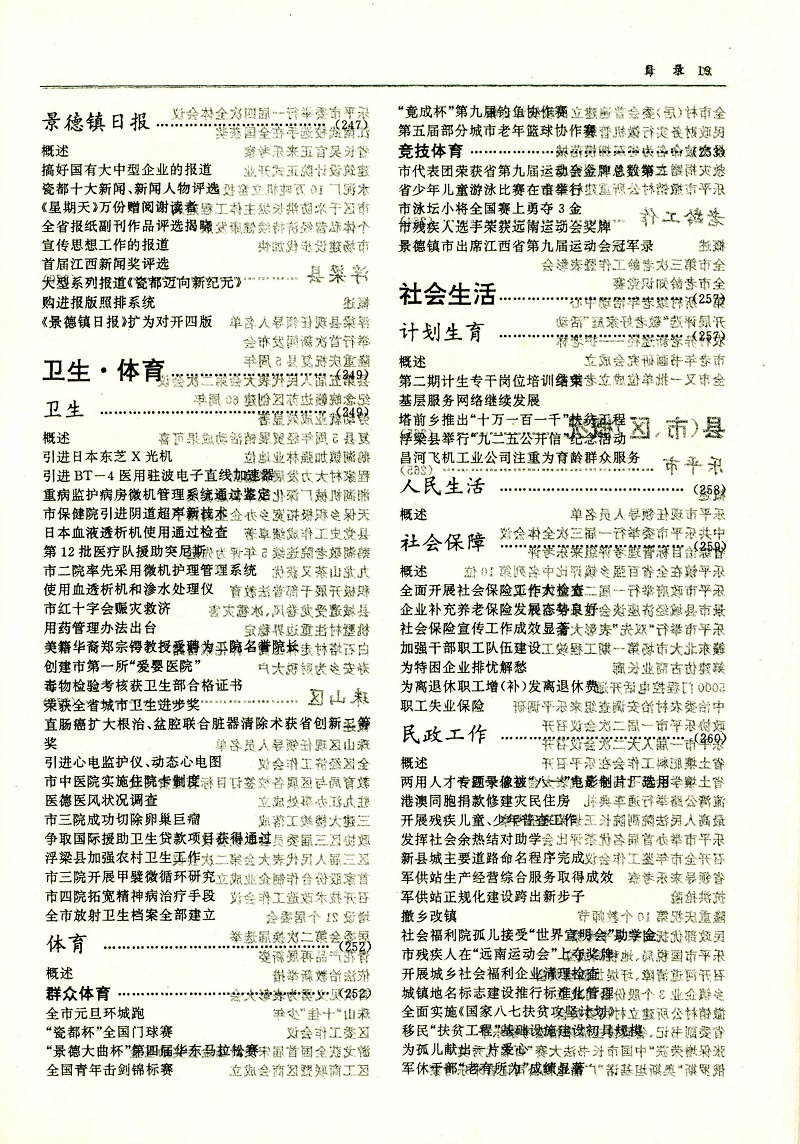 目 录 19
景德镇日报 (247)
概述
搞好国有大中型企业的报道
瓷都十大新闻、新闻人物评选
《星期天》万份赠阅谢读者
全省报纸副刊作品评选揭晓
宣传思想工作的报道
首届江西新闻奖评选
大型系列报道《瓷都迈向新纪元》
购进报版照排系统
《景德镇日报》扩为对开四版
卫生·体育 (249)
卫生 (249)
概述
引进日本东芝X光机
引进BT－4医用驻波电子直线加速器
重病监护病房微机管理系统通过鉴定
市保健院引进阴道超声新技术
日本血液透析机使用通过检查
第12批医疗队援助突尼斯
市二院率先采用微机护理管理系统
使用血透析机和渗水处理仪
市红十字会赈灾救济
用药管理办法出台
美籍华裔郑宗锷教授受聘为二院名誉院长
创建市第一所“爱婴医院”
毒物检验考核获卫生部合格证书
荣获全省城市卫生进步奖
直肠癌扩大根治、盆腔联合脏器清除术获省创新三等
奖
引进心电监护仪、动态心电图
市中医院实施住院卡制度
医德医风状况调查
市三院成功切除卵巢巨瘤
争取国际援助卫生贷款项目获得通过
浮梁县加强农村卫生工作
市三院开展甲襞微循环研究
市四院拓宽精神病治疗手段
全市放射卫生档案全部建立
体育 (252)
概述
群众体育 (252)
全市元旦环城跑
“瓷都杯”全国门球赛
“景德大曲杯”第四届华东马拉松赛
全国青年击剑锦标赛
“竟成杯”第九届钓鱼协作赛
第五届部分城市老年篮球协作赛
竞技体育 (253)
市代表团荣获省第九届运动会金牌总数第二
省少年儿童游泳比赛在市举行
市泳坛小将全国赛上勇夺3金
市残疾人选手荣获远南运动会奖牌
景德镇市出席江西省第九届运动会冠军录
社会生活 (257)
计划生育 (257)
概述
第二期计生专干岗位培训结束
基层服务网络继续发展
塔前乡推出“十万一百一千”扶贫工程
浮梁县举行“九二五公开信”纪念活动
昌河飞机工业公司注重为育龄群众服务
人民生活 (258)
概述
社会保障 (259)
概述
全面开展社会保险工作大检查
企业补充养老保险发展态势良好
社会保险宣传工作成效显著
加强干部职工队伍建设
为特困企业排忧解愁
为离退休职工增(补)发离退休费
职工失业保险
民政工作 (260)
概述
两用人才专题录像被“八一”电影制片厂选用
港澳同胞捐款修建灾民住房
开展残疾儿童、少年普查工作
发挥社会余热结对助学
新县城主要道路命名程序完成
军供站生产经营综合服务取得成效
军供站正规化建设跨出新步子
撤乡改镇
社会福利院孤儿接受“世界宣明会”助学金
市残疾人在“远南运动会”上夺奖牌
开展城乡社会福利企业清理检查
城镇地名标志建设推行标准化管理
全面实施《国家八七扶贫攻坚计划》
移民“扶贫工程”基础设施建设初具规模
为孤儿献出一片爱心
军休干部“老有所为”成绩显著